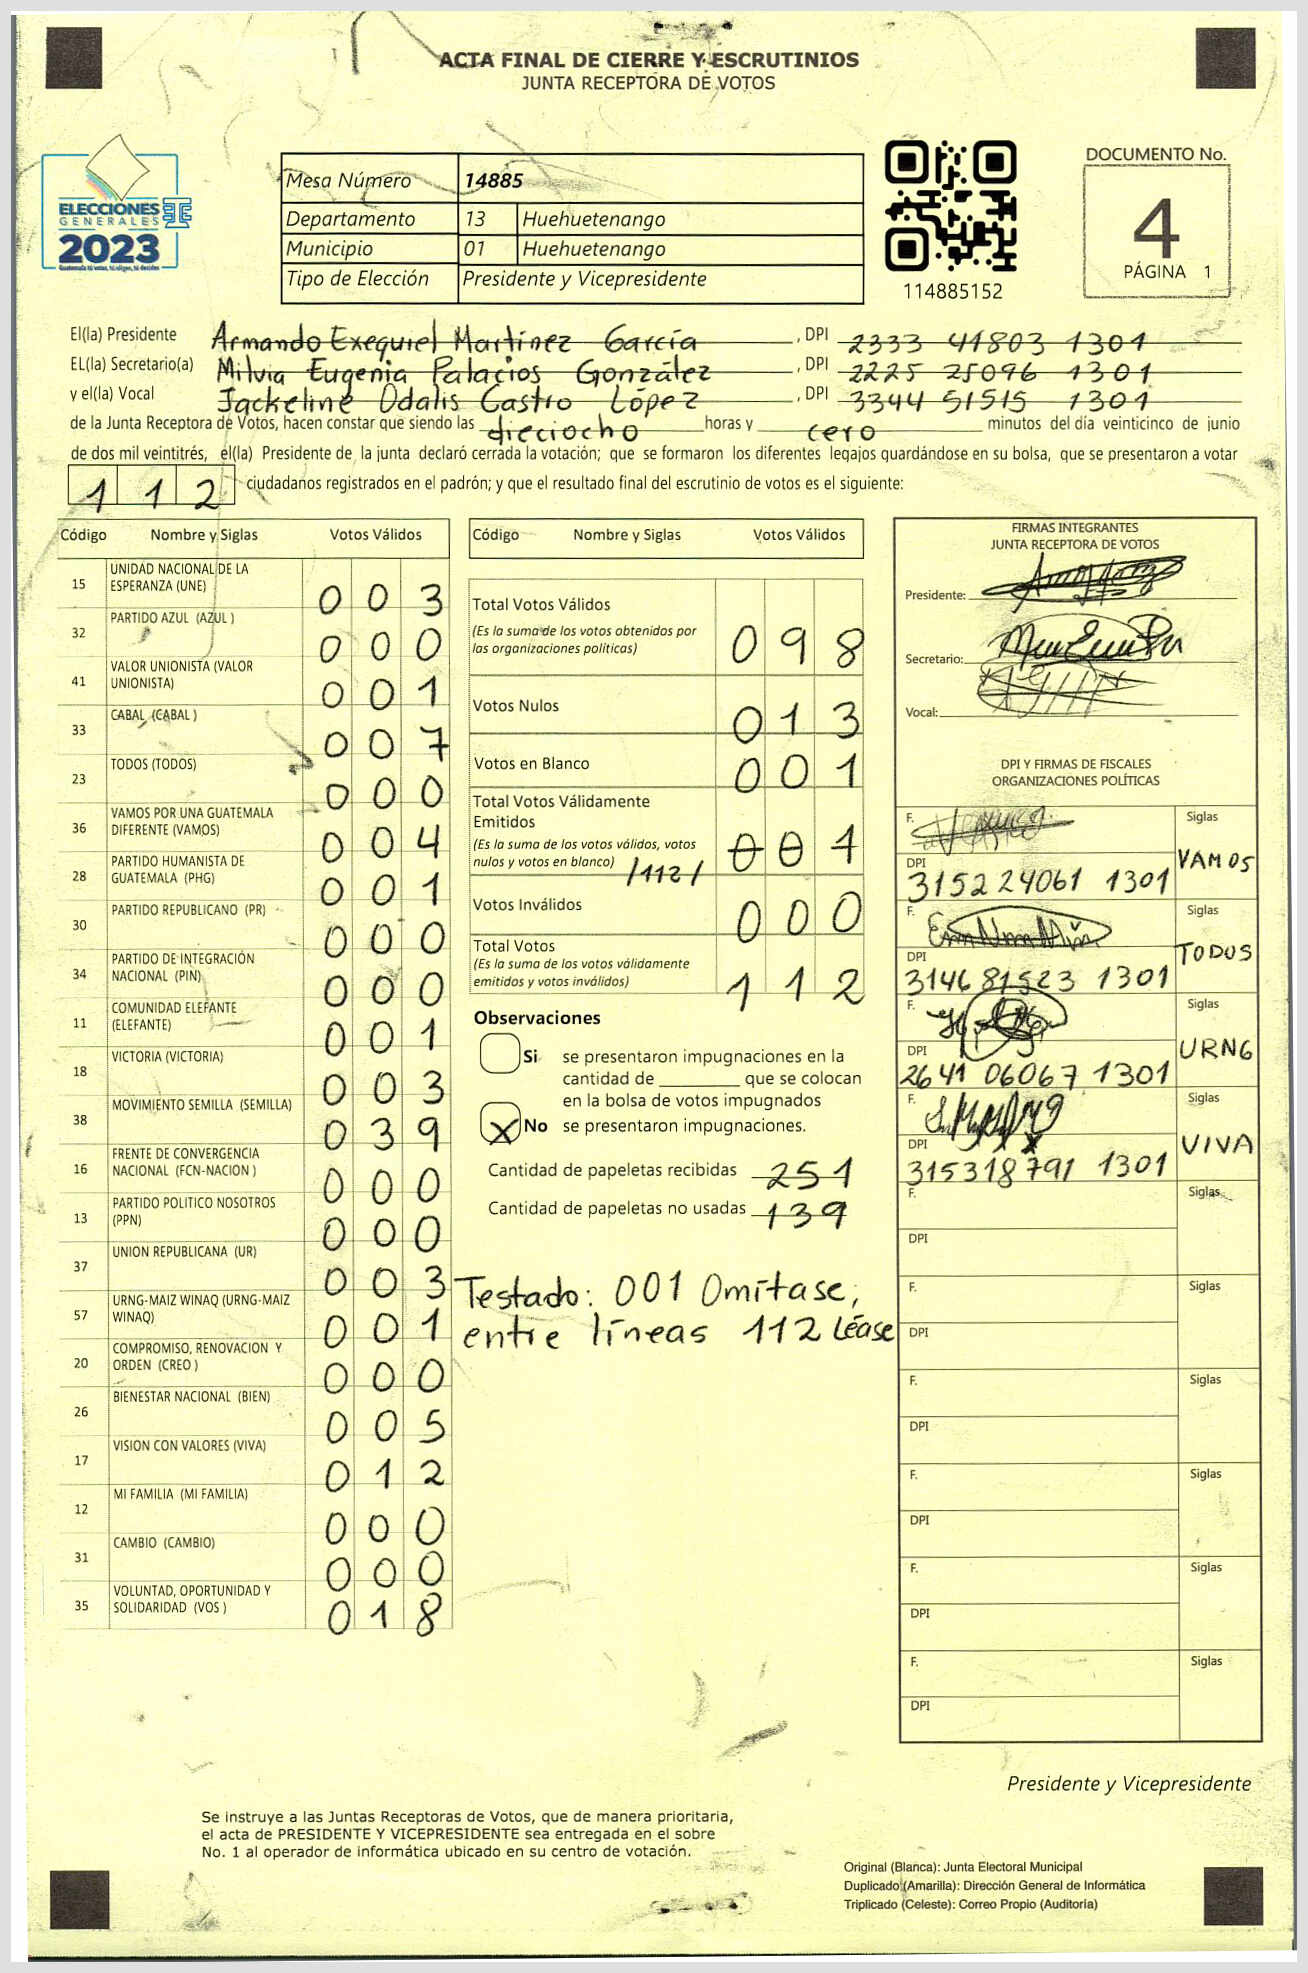 ACTA FINAL DE CIERRE Y ESCRUTINIOS
JUNTA RECEPTORA DE VOTOS
ELECCIONES
GENERALES
2023
Mesa Número 14885
Departamento 13 Huehuetenango
Municipio 01 Huehuetenango
Tipo de Elección Presidente y Vicepresidente
114885152
DOCUMENTO No.
4
PÁGINA 1
El(la) Presidente Armando Exequiel Martínez García, DPI 2333 41803 1301
EL(la) Secretario(a) Milvia Eugenia Palacios González, DPI 2225 25096 1301
y el(la) Vocal Jackeline Odalis Castro López, DPI 3344 51515 1301
de la Junta Receptora de Votos, hacen constar que siendo las dieciocho horas y cero minutos del día veinticinco de junio
de dos mil veintitrés, el(la) Presidente de la junta declaró cerrada la votación; que se formaron los diferentes legajos guardándose en su bolsa, que se presentaron a votar
112 ciudadanos registrados en el padrón; y que el resultado final del escrutinio de votos es el siguiente:
Código Nombre y Siglas Votos Válidos
15 UNIDAD NACIONAL DE LA ESPERANZA (UNE) 003
32 PARTIDO AZUL (AZUL ) 000
41 VALOR UNIONISTA (VALOR UNIONISTA) 001
33 CABAL (CABAL ) 007
23 TODOS (TODOS) 000
36 VAMOS POR UNA GUATEMALA DIFERENTE (VAMOS) 004
28 PARTIDO HUMANISTA DE GUATEMALA (PHG) 001
30 PARTIDO REPUBLICANO (PR) 000
34 PARTIDO DE INTEGRACIÓN NACIONAL (PIN) 000
11 COMUNIDAD ELEFANTE (ELEFANTE) 001
18 VICTORIA (VICTORIA) 003
38 MOVIMIENTO SEMILLA (SEMILLA) 039
16 FRENTE DE CONVERGENCIA NACIONAL (FCN-NACION ) 000
13 PARTIDO POLITICO NOSOTROS (PPN) 000
37 UNION REPUBLICANA (UR) 003
57 URNG-MAIZ WINAQ (URNG-MAIZ WINAQ) 001
20 COMPROMISO, RENOVACION Y ORDEN (CREO ) 000
26 BIENESTAR NACIONAL (BIEN) 005
17 VISION CON VALORES (VIVA) 012
12 MI FAMILIA (MI FAMILIA) 000
31 CAMBIO (CAMBIO) 000
35 VOLUNTAD, OPORTUNIDAD Y SOLIDARIDAD (VOS ) 018
Código Nombre y Siglas Votos Válidos
Total Votos Válidos
(Es la suma de los votos obtenidos por
las organizaciones políticas) 098
Votos Nulos 013
Votos en Blanco 001
Total Votos Válidamente
Emitidos
(Es la suma de los votos válidos, votos
nulos y votos en blanco) /112/ 001
Votos Inválidos 000
Total Votos
(Es la suma de los votos válidamente
emitidos y votos inválidos) 112
Observaciones
Si se presentaron impugnaciones en la
cantidad de ________ que se colocan
en la bolsa de votos impugnados
X No se presentaron impugnaciones.
Cantidad de papeletas recibidas 251
Cantidad de papeletas no usadas 139
Testado: 001 Omítase;
entre líneas 112 Léase
FIRMAS INTEGRANTES
JUNTA RECEPTORA DE VOTOS
Presidente:
Secretario:
Vocal:
DPI Y FIRMAS DE FISCALES
ORGANIZACIONES POLÍTICAS
F. Siglas
DPI 3152 24061 1301 VAMOS
F. Siglas
DPI 3146 81523 1301 TODOS
F. Siglas
DPI 2641 06067 1301 URNG
F. Siglas
DPI 315318791 1301 VIVA
F. Siglas
DPI
F. Siglas
DPI
F. Siglas
DPI
F. Siglas
DPI
F. Siglas
DPI
F. Siglas
DPI
Presidente y Vicepresidente
Se instruye a las Juntas Receptoras de Votos, que de manera prioritaria,
el acta de PRESIDENTE Y VICEPRESIDENTE sea entregada en el sobre
No. 1 al operador de informática ubicado en su centro de votación.
Original (Blanca): Junta Electoral Municipal
Duplicado (Amarilla): Dirección General de Informática
Triplicado (Celeste): Correo Propio (Auditoría)